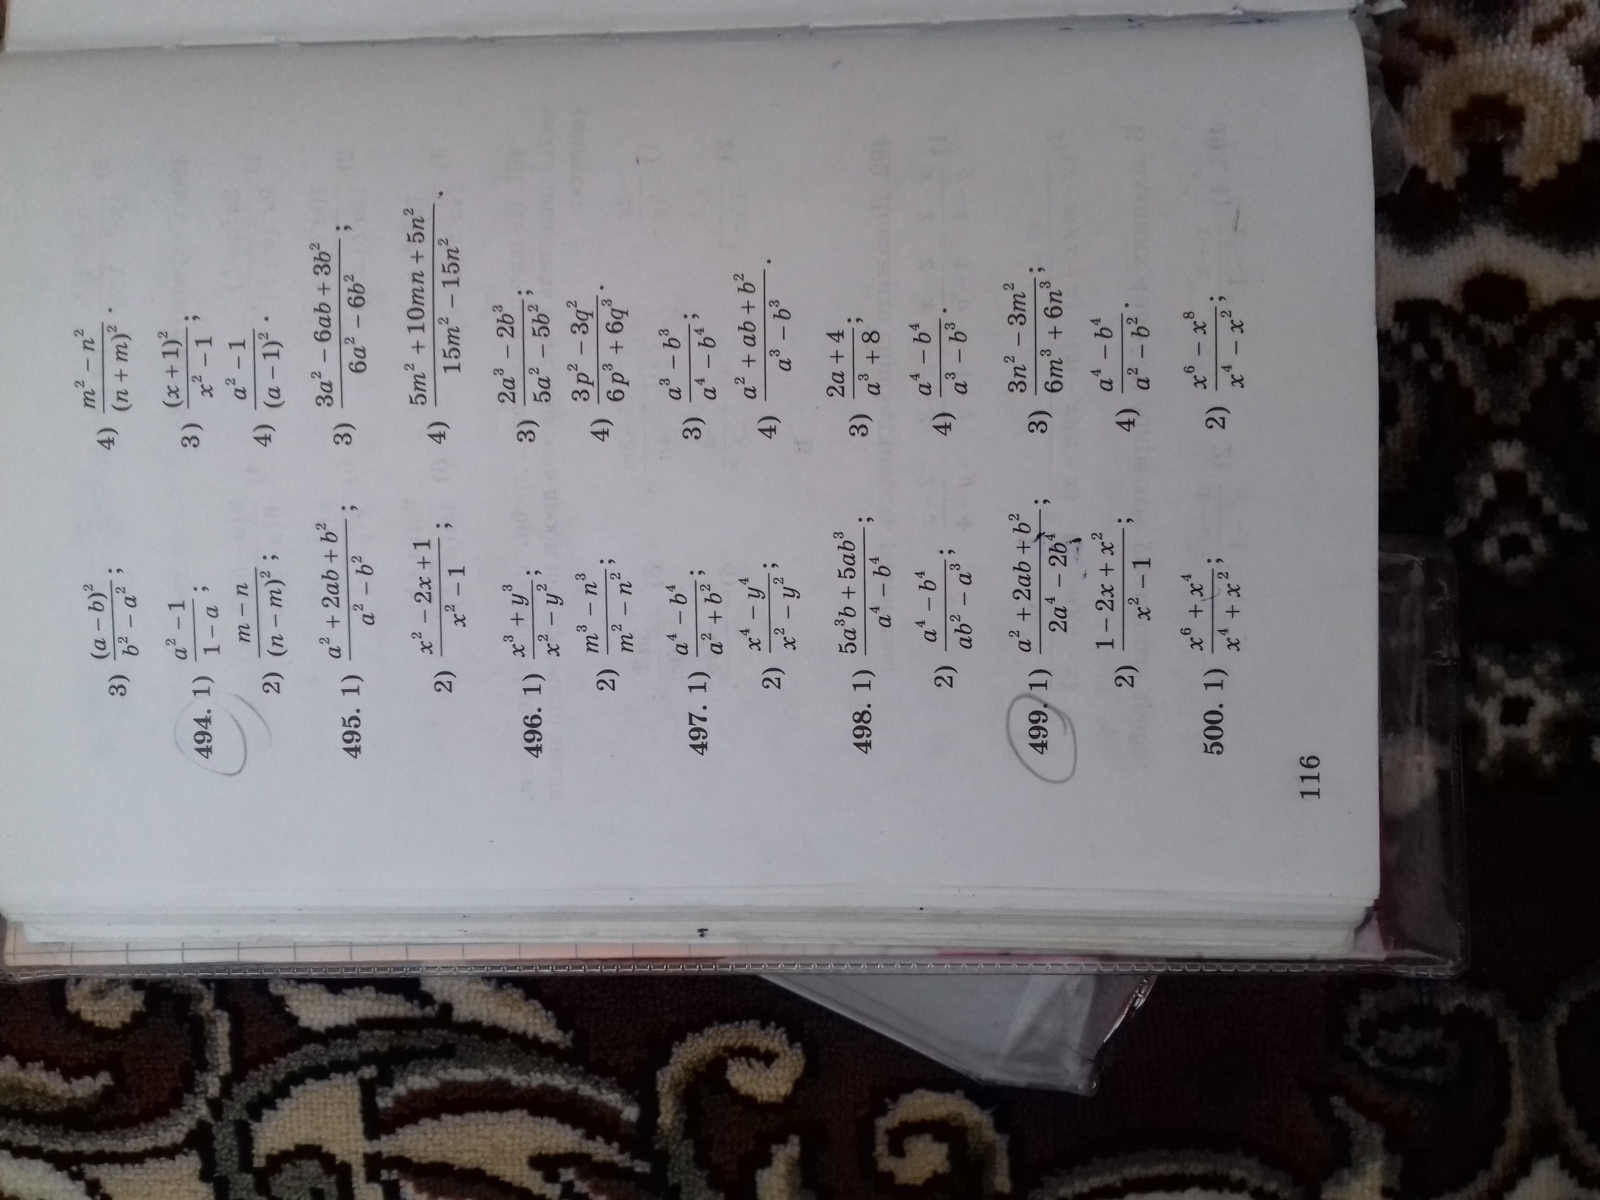 3) \frac{(a-b)^2}{b^2-a^2}; 4) \frac{m^2-n^2}{(n+m)^2}.
494. 1) \frac{a^2-1}{1-a}; 3) \frac{(x+1)^2}{x^2-1};
2) \frac{m-n}{(n-m)^2}; 4) \frac{a^2-1}{(a-1)^2}.
495. 1) \frac{a^2+2ab+b^2}{a^2-b^2}; 3) \frac{3a^2-6ab+3b^2}{6a^2-6b^2};
2) \frac{x^2-2x+1}{x^2-1}; 4) \frac{5m^2+10mn+5n^2}{15m^2-15n^2}.
496. 1) \frac{x^3+y^3}{x^2-y^2}; 3) \frac{2a^3-2b^3}{5a^2-5b^2};
2) \frac{m^3-n^3}{m^2-n^2}; 4) \frac{3p^2-3q^2}{6p^3+6q^3}.
497. 1) \frac{a^4-b^4}{a^2+b^2}; 3) \frac{a^3-b^3}{a^4-b^4};
2) \frac{x^4-y^4}{x^2-y^2}; 4) \frac{a^2+ab+b^2}{a^3-b^3}.
498. 1) \frac{5a^3b+5ab^3}{a^4-b^4}; 3) \frac{2a+4}{a^3+8};
2) \frac{a^4-b^4}{ab^2-a^3}; 4) \frac{a^4-b^4}{a^3-b^3}.
499. 1) \frac{a^2+2ab+b^2}{2a^4-2b^4}; 3) \frac{3n^2-3m^2}{6m^3+6n^3};
2) \frac{1-2x+x^2}{x^2-1}; 4) \frac{a^4-b^4}{a^2-b^2}.
500. 1) \frac{x^6+x^4}{x^4+x^2}; 2) \frac{x^6-x^8}{x^4-x^2};
116